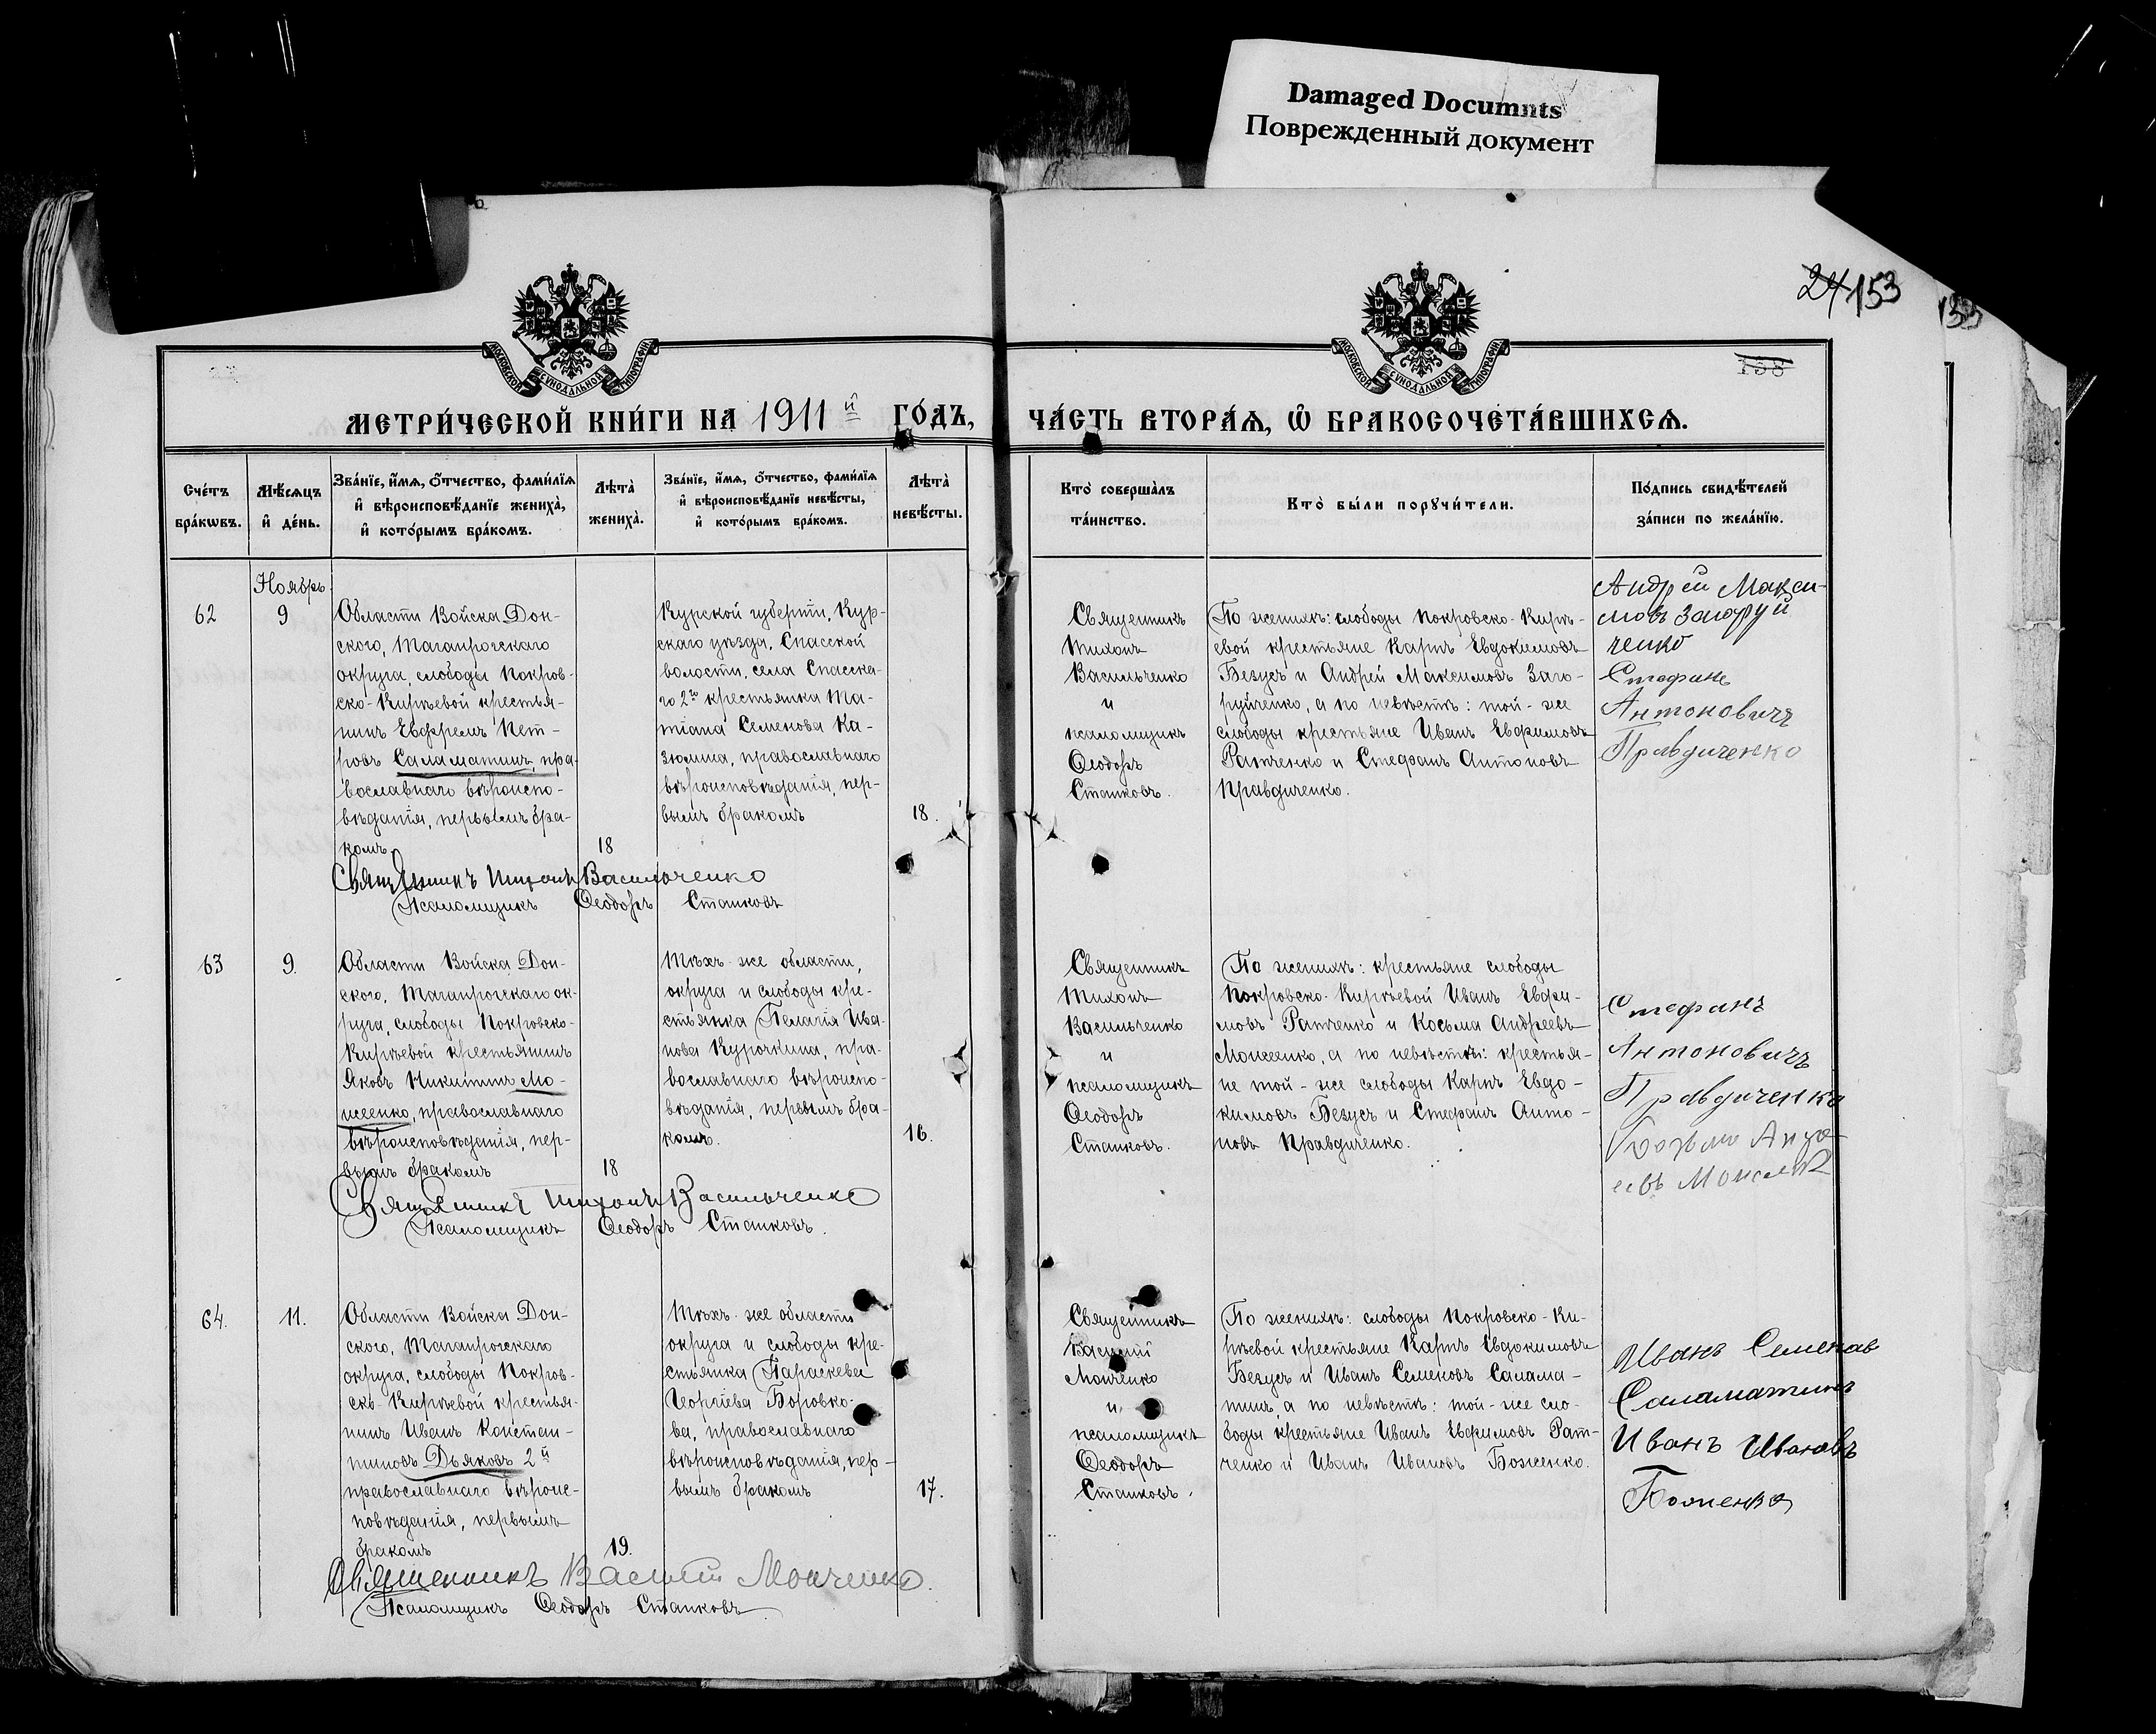 Damaged Documnts
Поврежденный документ
24 153
153
138
МОСКОВСКОЙ СѴНОДАЛЬНОЙ ТИПОГРАФІИ
МОСКОВСКОЙ СѴНОДАЛЬНОЙ ТИПОГРАФІИ
МЕТРИ́ЧЕСКОЙ КНИ́ГИ НА 1911й ГО́ДЪ,
ЧА́СТЬ ВТОРА́Ѧ, Ѡ҆ БРАКОСОЧЕТА́ВШИХСѦ.
Сче́тъ
бра́кѡвъ.
Мѣ́сѧцъ
и҆ де́нь.
Зва́нїе, и҆́мѧ, ѻ҆́тчество, фами́лїѧ
и҆ вѣроисповѣ́данїе жениха̀,
и҆ кото́рымъ бра́комъ.
Лѣта̀
жениха̀.
Зва́нїе, и҆́мѧ, ѻ҆́тчество, фами́лїѧ
и҆ вѣроисповѣ́данїе невѣ́сты,
и҆ кото́рымъ бра́комъ.
Лѣта̀
невѣ́сты.
Кто̀ соверша̀лъ
та́инство.
Кто̀ бы́ли порꙋчи́тели.
По́дпись свидѣ́телей
за́писи по жела́нїю.
62
Ноябрь
9
Области Войска Дон-
ского, Таганрогскаго
округа, слободы Покров-
ско-Кирѣевой крестья-
нинъ Ефремъ Пет-
ровъ Саламатинъ, пра-
вославнаго вѣроиспо-
вѣданія, первымъ бра-
комъ
18
Курской губерніи, Кур-
скаго уѣзда, Спасской
волости, села Спасска-
го 2го крестьянка Та-
тіана Семенова Ка-
зюлина, православнаго
вѣроисповѣданія, пер-
вымъ бракомъ
18.
Священникъ Тихонъ Васильченко
Псаломщикъ Ѳеодоръ Станковъ
Священникъ
Тихонъ
Васильченко
и
псаломщикъ
Ѳеодоръ
Станковъ.
По женихѣ: слободы Покровско-Кирѣ-
евой крестьяне Карпъ Евдокимовъ
Безусъ и Андрей Максимовъ Заго-
руйченко, а по невѣстѣ: той-же
слободы крестьяне Иванъ Ефимовъ
Ратченко и Стефанъ Антоновъ
Правдиченко.
Андрей Макси-
мовъ Загоруй
ченко
Стефанъ
Антоновичъ
Правдиченко
63
9.
Области Войска Дон-
ского, Таганрогскаго ок-
руга, слободы Покровско-
Кирѣевой крестьянинъ
Яковъ Никитинъ Мо-
исеенко, православнаго
вѣроисповѣданія, пер-
вымъ бракомъ
18
Тѣхъ-же области,
округа и слободы кре-
стьянка Пелагія Ива-
нова Курочкина, пра-
вославнаго вѣроиспо-
вѣданія, первымъ бра-
комъ.
16.
Священникъ Тихонъ Васильченко
Псаломщикъ Ѳеодоръ Станковъ.
Священникъ
Тихонъ
Васильченко
и
псаломщикъ
Ѳеодоръ
Станковъ.
По женихѣ: крестьяне слободы
Покровско-Кирѣевой Иванъ Ефи-
мовъ Ратченко и Косьма Андреевъ
а по невѣстѣ: крестья-
не той-же слободы Карпъ Евдо-
кимовъ Безусъ и Стефанъ Анто-
новъ Правдиченко.
Стефанъ
Антоновичъ
Правдиченко
64.
11.
Области Войска Дон-
ского, Таганрогскаго
округа, слободы Покров-
ско-Кирѣевой крестья-
нинъ Иванъ Констан-
тиновъ Дьяковъ 2й
православнаго вѣроис-
повѣданія, первымъ
бракомъ
19.
Тѣхъ-же области
округа и слободы кре-
стьянка Параскева
Георгіева Боровко-
ва, православнаго
вѣроисповѣданія, пер-
вымъ бракомъ
17.
Священникъ Василій Монченко.
Псаломщикъ Ѳеодоръ Станковъ.
Священникъ
Василій
Монченко
и
псаломщикъ
Ѳеодоръ
Станковъ.
По женихѣ: слободы Покровско-Ки-
рѣевой крестьяне Карпъ Евдокимовъ
Безусъ и Иванъ Семеновъ Салама-
тинъ, а по невѣстѣ: той-же сло-
боды крестьяне Иванъ Ефимовъ Рат-
ченко и Иванъ Ивановъ Боженко.
Иванъ Семенов
Саламатинъ
Иванъ Ивановъ
Боженко